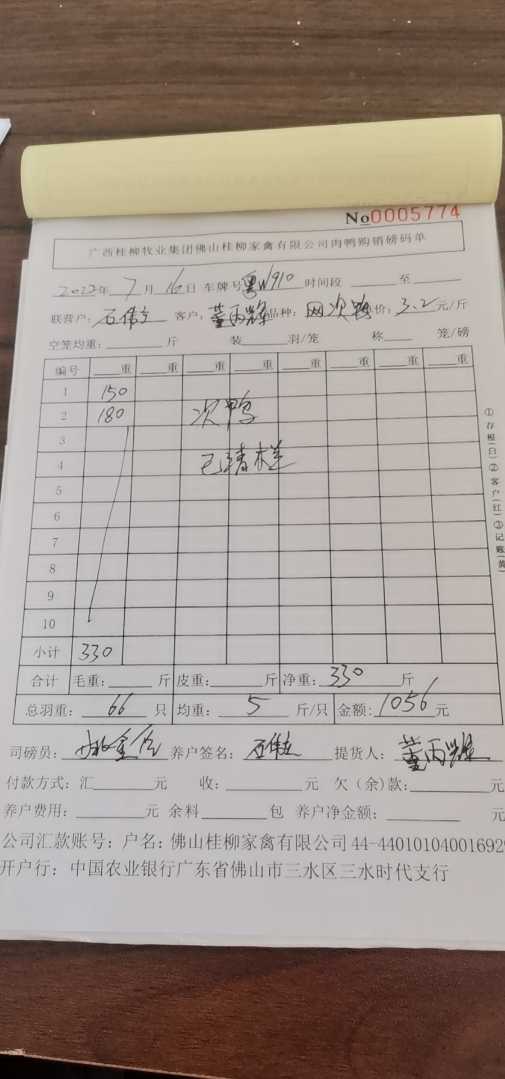 No 0005774
广西桂柳牧业集团佛山桂柳家禽有限公司肉鸭购销磅码单
2022年 7 月 16 日 车牌号 粤W910 时间段 至
联营户: 石伟立 客户: 董丙辉 品种: 网次鸭 价: 3.2 元/斤
空笼均重: 斤 装 羽/笼 称 笼/磅
编号 重 重 重 重 重 重 重 重
1 150
2 180 次鸭
3
4 已清栏
5
6
7
8
9
10
小计 330
合计 毛重: 斤 皮重: 斤 净重: 330 斤
总羽重: 66 只 均重: 5 斤/只 金额: 1056 元
司磅员: 养户签名: 石伟立 提货人: 董丙辉
付款方式: 汇 元 收: 元 欠(余)款: 元
养户费用: 元 余料 包 养户净金额: 元
公司汇款账号: 户名: 佛山桂柳家禽有限公司 44-44010104001692
开户行: 中国农业银行广东省佛山市三水区三水时代支行
①存根(白)②客户(红)③记账(黄)